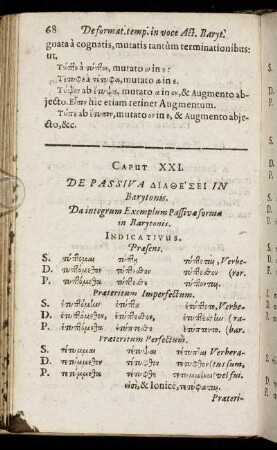 68 De format. temp. in voce Act. Baryt.
guata à cognatis, mutatis tantùm terminationibus:
ut,
Τύπτε à τύπτω, mutato ω in ε:
Τέτυφε à τέτυφα, mutato α in ε.
Τύψον ab ἔτυψα, mutato α in ον, & Augmento ab-
jecto. Εἶπον hic etiam retinet Augmentum.
Τύπε ab ἔτυπον, mutato ον in ε, & Augmento abje-
cto, &c.
CAPUT XXI.
DE PASSIVA ΔΙΑΘΕ'ΣΕΙ IN
Barytonis.
Da integrum Exemplum Passivæ formæ
in Barytonis.
INDICATIVUS.
Præsens.
S. τύπτομαι τύπτῃ τύπτεται, Verbe-
D. τυπτόμεθον τύπτεσθον τύπτεσθον (ror.
P. τυπτόμεθα τύπτεσθε τύπτονται.
Præteritum Imperfectum.
S. ἐτυπτόμην ἐτύπτου ἐτύπτετο, Verbe-
D. ἐτυπτόμεθον, ἐτύπτεσθον, ἐτυπτέσθην (ra-
P. ἐτυπτόμεθα ἐτύπτεσθε ἐτύπτοντο. (bar.
Præteritum Perfectum.
S. τέτυμμαι τέτυψαι τέτυπται Verbera-
D. τετύμμεθον τέτυφθον τέτυφθον (tus sum,
P. τετύμμεθα τέτυφθε τετυμμένοι (vel fui.
εἰσὶ, & Ionicè, τετύφαται.
Præteri-